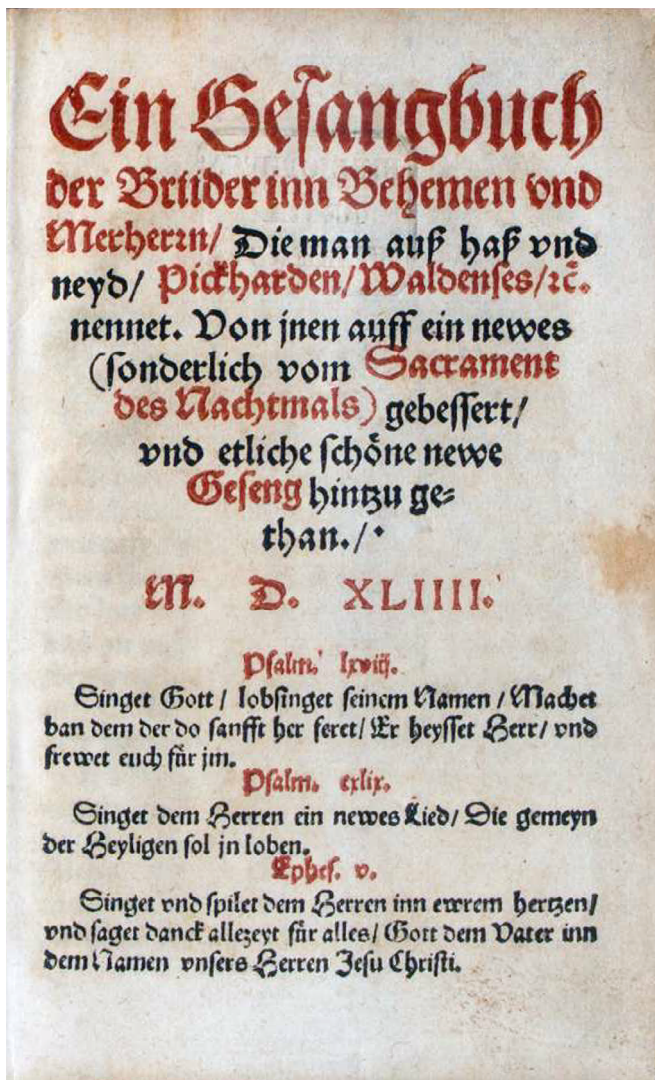 Ein Geſangbuch
der Brüder inn Behemen vnd
Merherrn/ Die man auß haß vnd
neyd/ Pickharden/ Waldenſes/ ꝛc̃.
nennet. Von jnen auff ein newes
(ſonderlich vom Sacrament
des Nachtmals) gebeſſert/
vnd etliche ſchöne newe
Geſeng hintzu ge⸗
than./·
M. D. XLIIII.
Pſalm. lxviij.
Singet Gott / lobſinget ſeinem Namen / Machet
ban dem der do ſanfft her feret/ Er heyſſet Herr/ vnd
frewet euch für jm.
Pſalm. cxlix.
Singet dem Herren ein newes Lied/ Die gemeyn
der Heyligen ſol jn loben.
Epheſ. v.
Singet vnd ſpilet dem Herren inn ewrem hertzen/
vnd ſaget danck allezeyt für alles/ Gott dem Vater inn
dem Namen vnſers Herren Jeſu Chriſti.